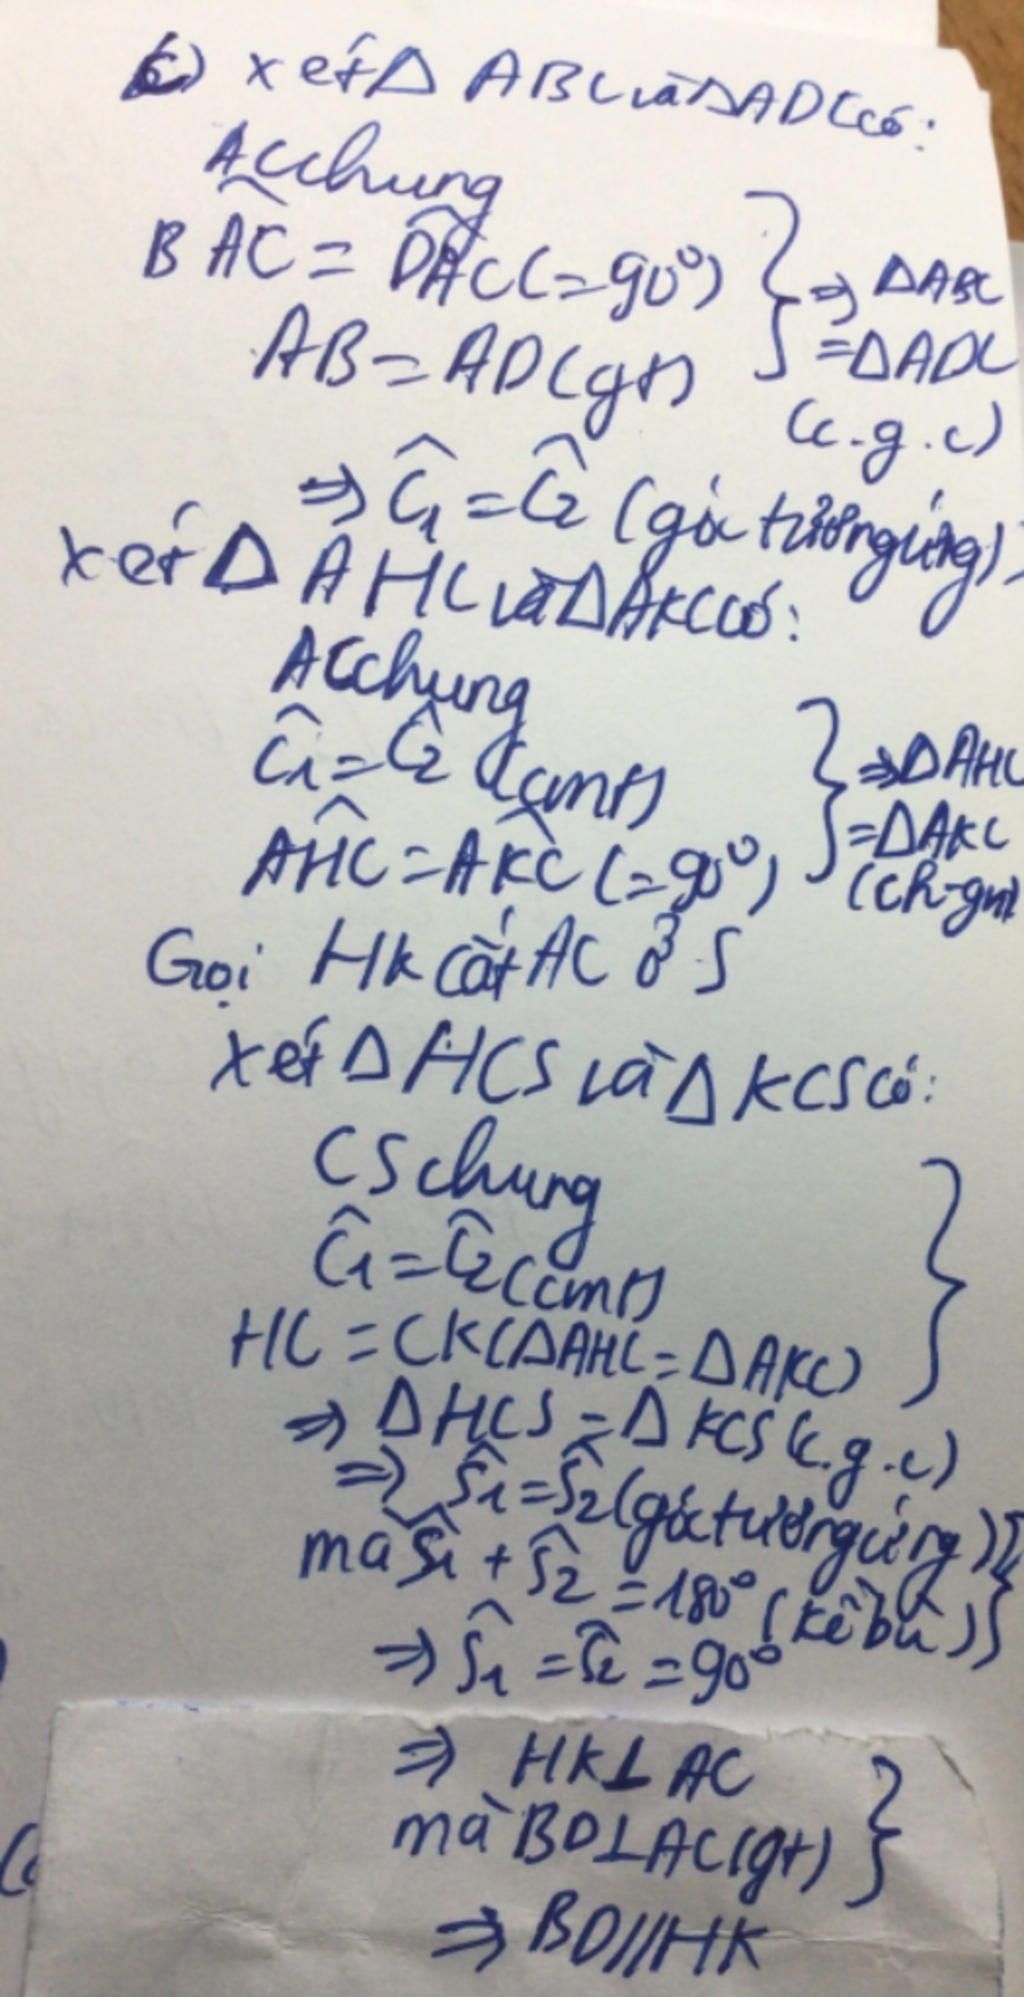 c) xét Δ ABC và Δ ADC có:
AC chung
BAC = DAC (= 90°) } ⇒ ΔABC
AB = AD (gt) = ΔADC
(c.g.c)
⇒ Ĉ1 = Ĉ2 (góc tương ứng)
xét Δ AHC và Δ AKC có:
AC chung
Ĉ1 = Ĉ2 (cmt) } ⇒ ΔAHC
AHC = AKC (= 90°) = ΔAKC
(ch-gn)
Gọi HK cắt AC ở S
xét Δ HCS và Δ KCS có:
CS chung
Ĉ1 = Ĉ2 (cmt)
HC = CK (ΔAHC = ΔAKC) }
⇒ ΔHCS = Δ KCS (c.g.c)
⇒ Ŝ1 = Ŝ2 (góc tương ứng)
mà Ŝ1 + Ŝ2 = 180° (kề bù) }
⇒ Ŝ1 = Ŝ2 = 90°
⇒ HK ⊥ AC
mà BD ⊥ AC (gt) }
⇒ BD // HK